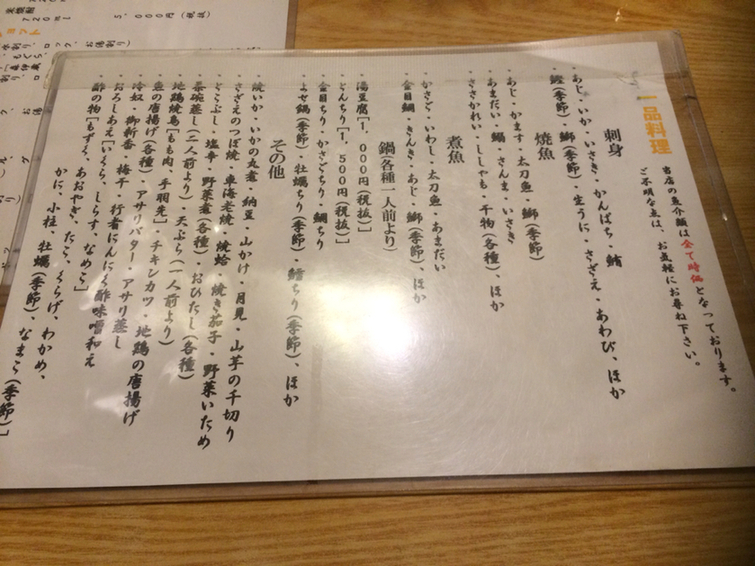 一品料理
当店の魚介類は全て時価となっております。
ご不明な点は、お気軽にお尋ね下さい。
刺身
・あじ・いか・いさき・かんぱち・鮪
・鰹(季節)・鰤(季節)・生うに・さざえ・あわび、ほか
焼魚
・あじ・かます・太刀魚・鰤(季節)
・あまだい・鯛・さんま・いさき
・ささかれい・ししゃも・干物(各種)、ほか
煮魚
・かさご・いわし・太刀魚・あまだい
・金目鯛・きんき・あじ・鰤(季節)、ほか
鍋(各種一人前より)
・湯豆腐[1,000円(税抜)]
・とんちり[1,500円(税抜)]
・金目ちり・かさごちり・鯛ちり
・よせ鍋(季節)・牡蠣ちり(季節)・鱈ちり(季節)、ほか
その他
・焼いか・いかの丸煮・納豆・山かけ・月見・山芋の千切り
・さざえのつぼ焼・車海老焼・焼蛤・焼き茄子・野菜いため
・どこぶし・塩辛・野菜煮(各種)・おひたし(各種)
・茶碗蒸し(二人前より)・天ぷら(一人前より)
・地鶏焼鳥[もも肉、手羽先]・チキンカツ・地鶏の唐揚げ
・魚の唐揚げ(各種)・アサリバター・アサリ蒸し
・冷奴・御新香・梅干・行者にんにく酢味噌和え
・おろしあえ[いくら、しらす、なめこ]
・酢の物[もずく、あおやぎ、たこ、くらげ、わかめ、
かに、小柱、牡蠣(季節)、なまこ(季節)]
720ml
5,000円(税抜)